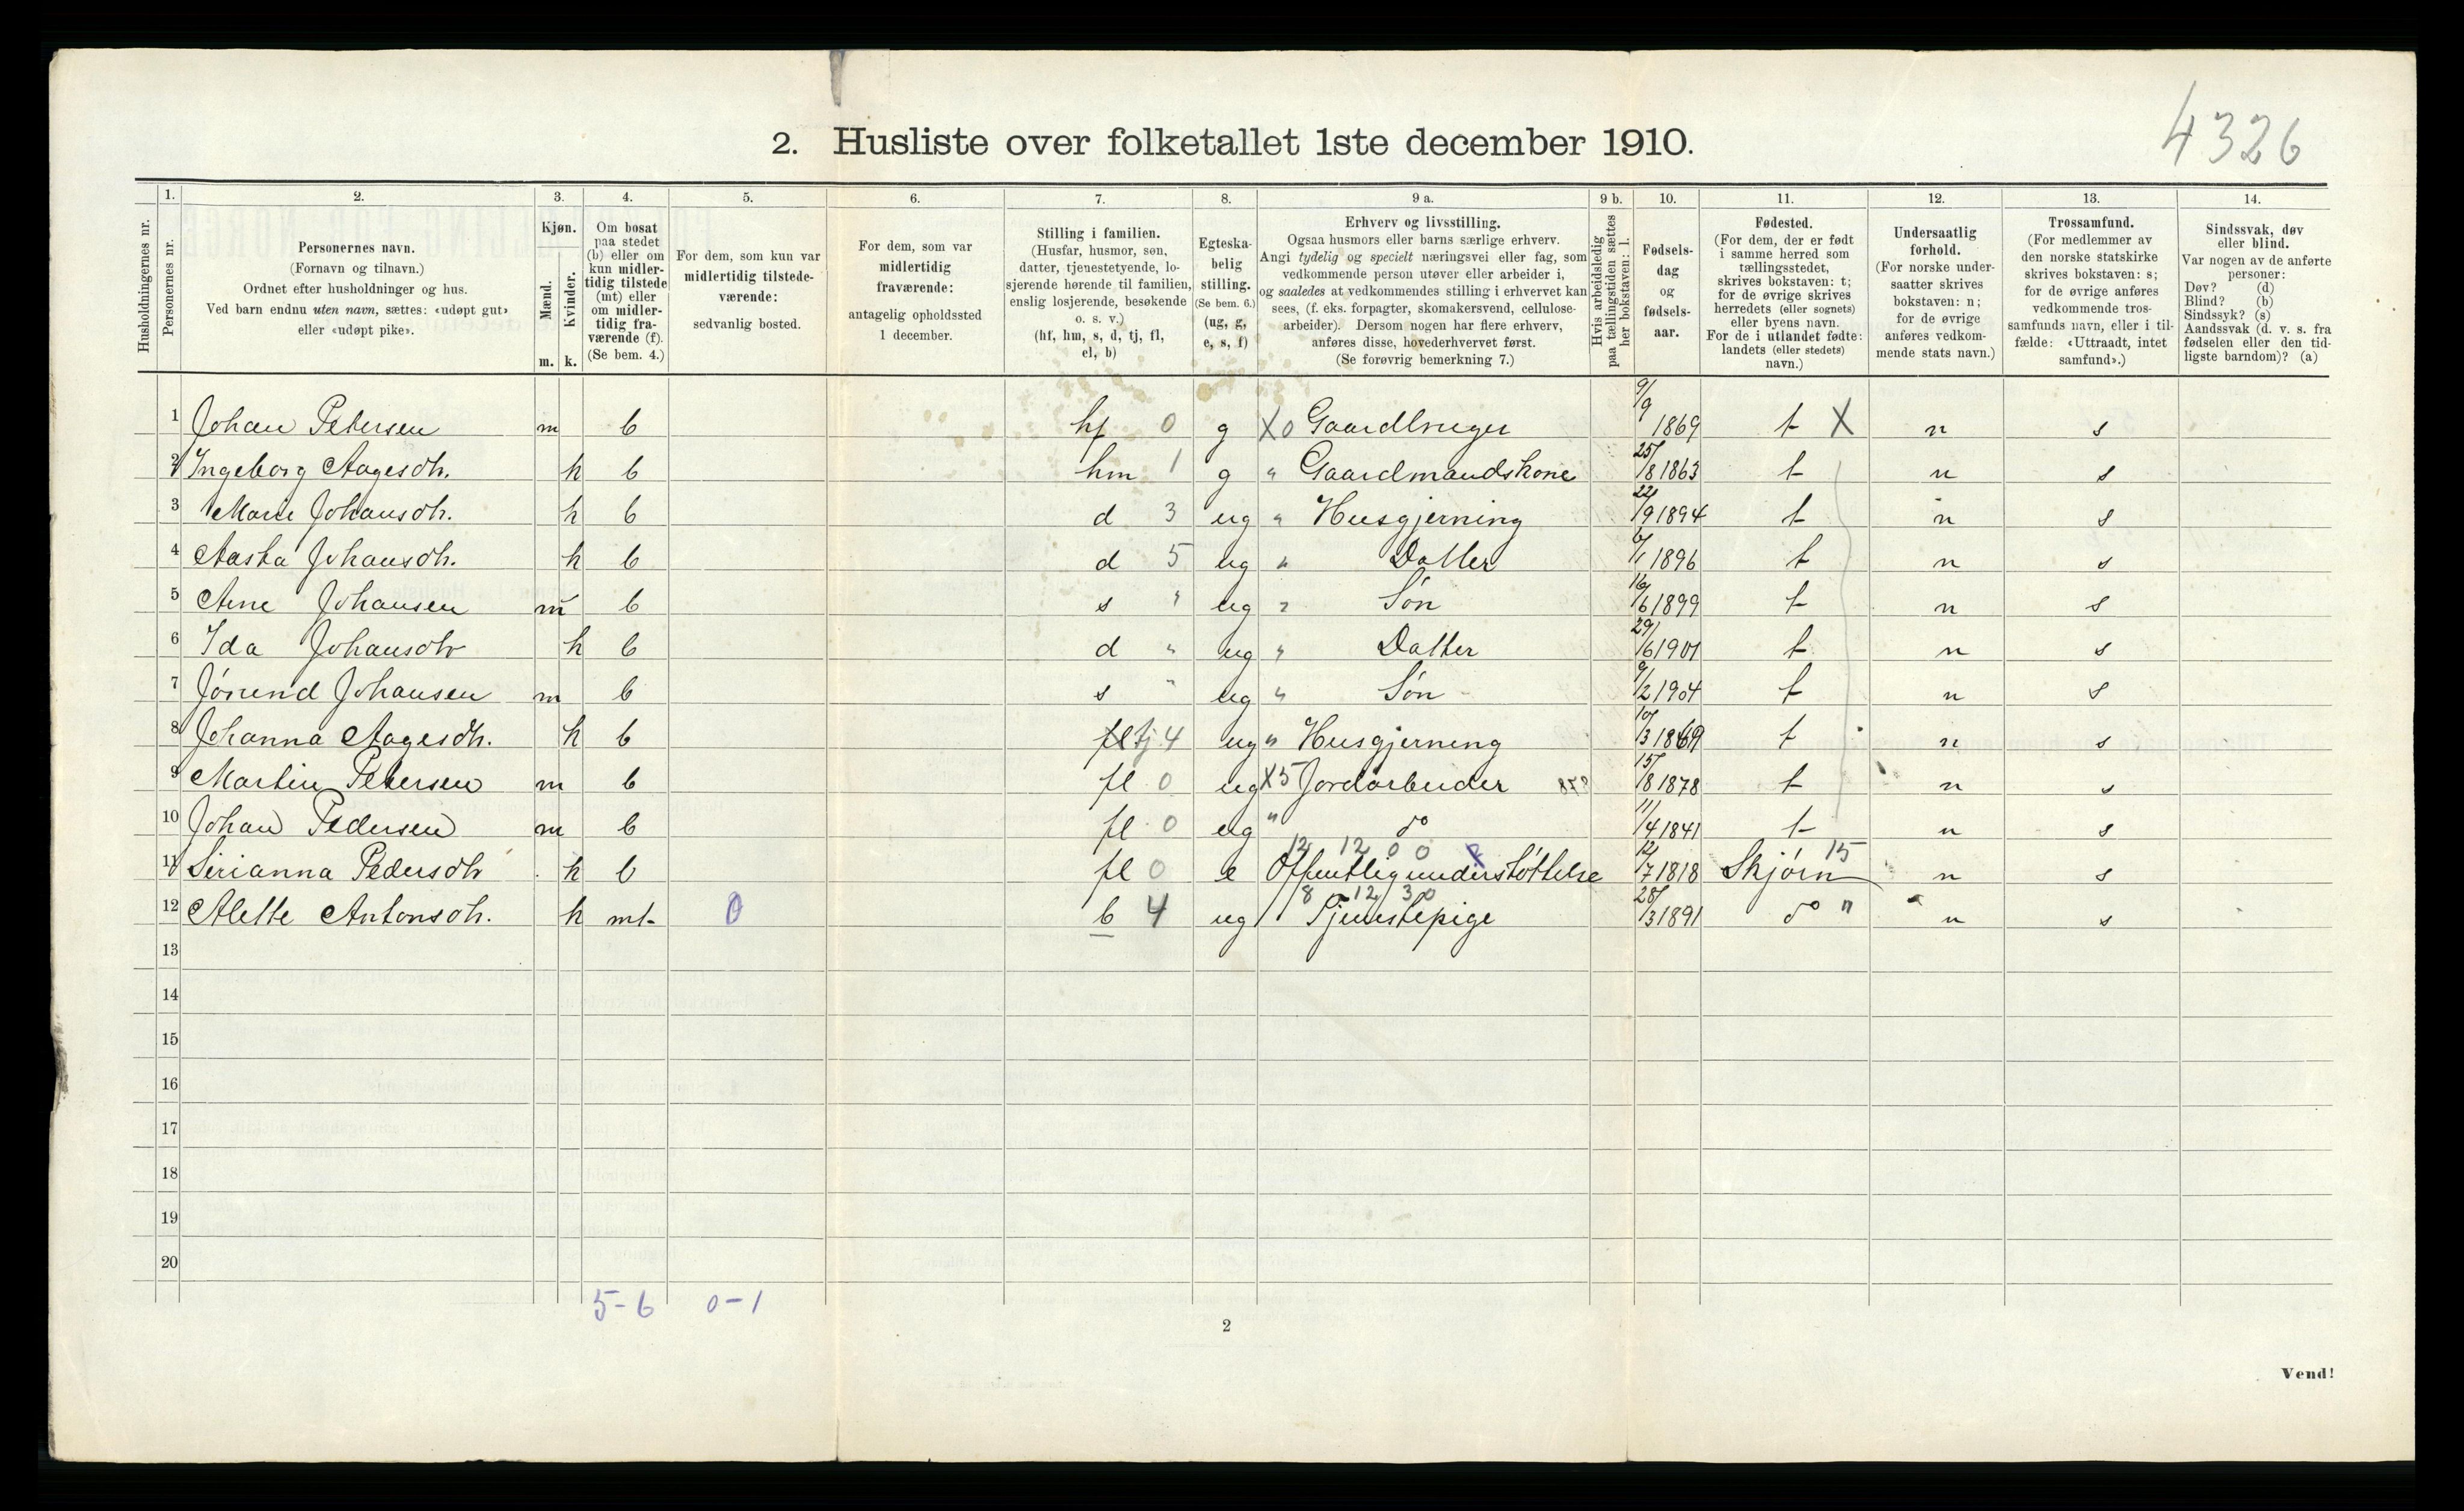 4326
2. Husliste over folketallet 1ste december 1910.
Husholdningernes nr.
1.
Personernes nr.
2.
Personernes navn.
(Fornavn og tilnavn.)
Ordnet efter husholdninger og hus.
Ved barn endnu uten navn, sættes: «udøpt gut»
eller «udøpt pike».
3.
Kjøn.
Mænd.
Kvinder.
m. k.
4.
Om bosat
paa stedet
(b) eller om
kun midler-
tidig tilstede
(mt) eller
om midler-
tidig fra-
værende (f).
(Se bem. 4.)
5.
For dem, som kun var
midlertidig tilstede-
værende:
sedvanlig bosted.
6.
For dem, som var
midlertidig
fraværende:
antagelig opholdssted
1 december.
7.
Stilling i familien.
(Husfar, husmor, søn,
datter, tjenestetyende, lo-
sjerende hørende til familien,
enslig losjerende, besøkende
o. s. v.)
(hf, hm, s, d, tj, fl,
el, b)
8.
Egteska-
belig
stilling.
(Se bem. 6.)
(ug, g,
e, s, f)
9 a.
Erhverv og livsstilling.
Ogsaa husmors eller barns særlige erhverv.
Angi tydelig og specielt næringsvei eller fag, som
vedkommende person utøver eller arbeider i,
og saaledes at vedkommendes stilling i erhvervet kan
sees, (f. eks. forpagter, skomakersvend, cellulose-
arbeider). Dersom nogen har flere erhverv,
anføres disse, hovederhvervet først.
(Se forøvrig bemerkning 7.)
9 b.
Hvis arbeidsledig
paa tællingstiden sættes
her bokstaven: l.
10.
Fødsels-
dag
og
fødsels-
aar.
11.
Fødested.
(For dem, der er født
i samme herred som
tællingsstedet,
skrives bokstaven: t;
for de øvrige skrives
herredets (eller sognets)
eller byens navn.
For de i utlandet fødte:
landets (eller stedets)
navn.)
12.
Undersaatlig
forhold.
(For norske under-
saatter skrives
bokstaven: n;
for de øvrige
anføres vedkom-
mende stats navn.)
13.
Trossamfund.
(For medlemmer av
den norske statskirke
skrives bokstaven: s;
for de øvrige anføres
vedkommende tros-
samfunds navn, eller i til-
fælde: «Uttraadt, intet
samfund».)
14.
Sindssvak, døv
eller blind.
Var nogen av de anførte
personer:
Døv? (d)
Blind? (b)
Sindssyk? (s)
Aandssvak (d. v. s. fra
fødselen eller den tid-
ligste barndom)? (a)
1 Johan Petersen m b hf 0 g X0 Gaardbruger 9/9 1869 t X n s
2 Ingeborg Aagesdtr. k b hm 1 g " Gaardmandskone 25/8 1863 t n s
3 Marie Johansdtr. k b d 3 ug " Husgjerning 22/9 1894 t n s
4 Aasta Johansdtr. k b d 5 ug " Datter 6/1 1896 t n s
5 Arne Johansen m b s " ug " Søn 16/6 1899 t n s
6 Ida Johansdtr k b d " ug " Datter 29/6 1901 t n s
7 Jørund Johansen m b s " ug " Søn 9/2 1904 t n s
8 Johanna Aagesdtr. k b fl tj 4 ug " Husgjerning 10/3 1869 t n s
9 Martin Petersen m b fl 0 ug X5 Jordarbeider 15/8 1878 t n s
10 Johan Pedersen m b fl 0 ug " do 11/4 1841 t n s
12 12 0 0 15
11 Sirianna Pedersdtr k b fl 0 e Offentlig understøttelse 12/7 1818 Skjørn n s
8 12 30
12 Alette Antonsdtr. k mt 0 b 4 ug Tjenestepige 28/3 1891 do " n s
13
14
15
16
17
18
19
20
5-6 0-1
2
Vend!